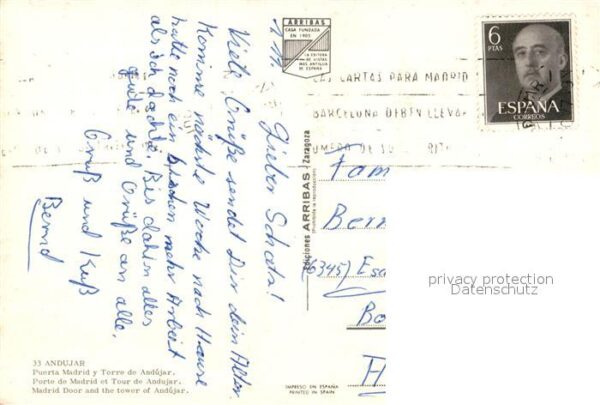 ARRIBAS
CASA FUNDADA
EN 1905
LA EDITORA
DE VISTAS
MAS ANTIGUA
DE ESPAÑA
6
PTAS
ESPAÑA
CORREOS
CARTAS PARA MADRID
BARCELONA DEBEN LLEVAR
NUMERO DE SU
Lieber Schatz!
Viele Grüße sendet Dir dein Alter.
Komme nächste Woche nach Hause
hatte noch ein bischen mehr Arbeit
als ich dachte. Bis dahin alles
Gute und Grüße an alle.
Gruß und Kuß
Bernd
Ediciones ARRIBAS - Zaragoza
(Prohibida la reproducción)
Fam
Bern
(6345) Esc
privacy protection
Datenschutz
33 ANDUJAR
Puerta Madrid y Torre de Andújar.
Porte de Madrid et Tour de Andujar.
Madrid Door and the tower of Andújar.
IMPRESO EN ESPAÑA
PRINTED IN SPAIN